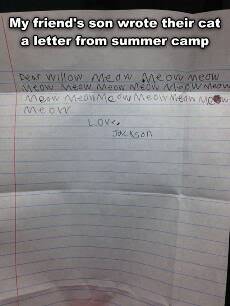 My friend's son wrote their cat
a letter from summer camp
Dear Willow Meow Meow Meow
Meow Meow Meow Meow Meow Meow
Meow Meow Meow Meow Mean Meow
Meow
Love,
Jackson